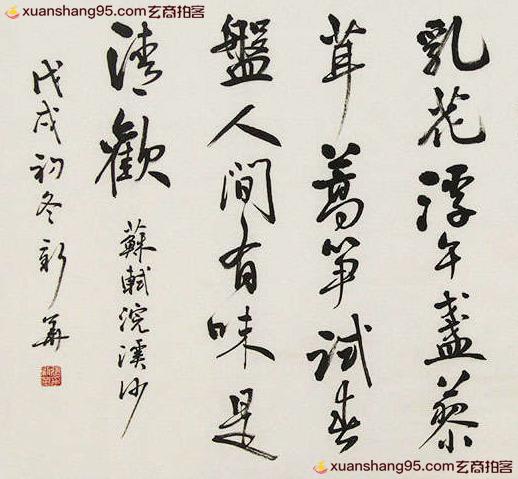 xuanshang95.com玄商拍客
xuanshang95.com玄商拍客
乳花浮午盏蓼
茸蒿笋试春
盤人间有味是
清歡
蘇軾浣溪沙
戊戌初冬新華
xuanshang95.com玄商拍客